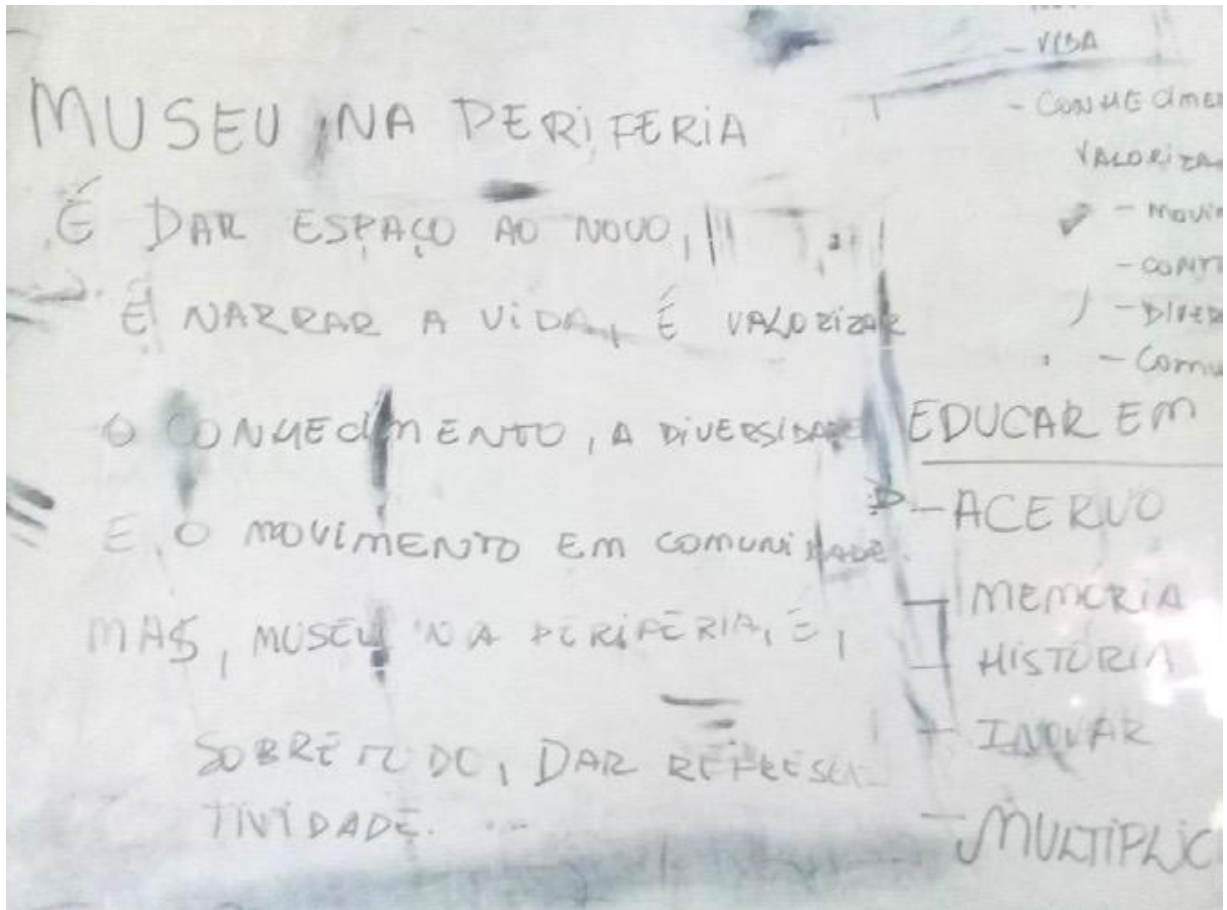 MUSEU NA PERIFERIA
É DAR ESPAÇO AO NOVO,
É NARRAR A VIDA, É VALORIZAR
O CONHECIMENTO, A DIVERSIDADE
E O MOVIMENTO EM COMUNIDADE.
MAS, MUSEU NA PERIFERIA, É,
SOBRETUDO, DAR REPRESEN
TIVIDADE.
- VIDA
- CONHECIMEN
VALORIZA
- MOVIM
- CONT
- DIVER
- COMU
EDUCAR EM
- ACERVO
MEMÓRIA
HISTÓRIA
- INOVAR
- MULTIPLIC